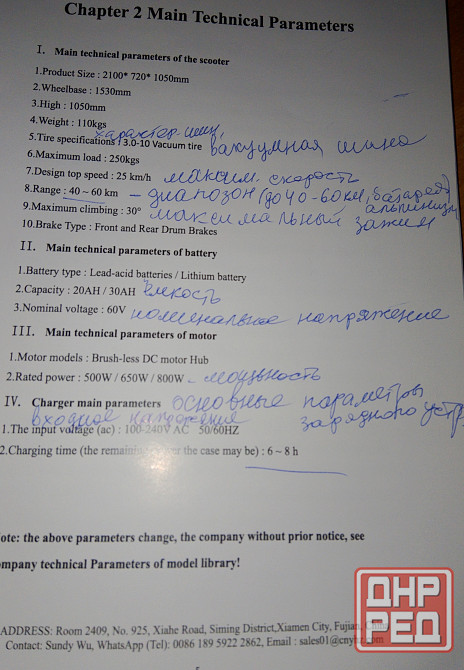 Chapter 2 Main Technical Parameters
I. Main technical parameters of the scooter
1.Product Size : 2100* 720* 1050mm
2.Wheelbase : 1530mm
3.High : 1050mm
4.Weight : 110kgs
характер. шин,
5.Tire specifications : 3.0-10 Vacuum tire вакуумная шина
6.Maximum load : 250kgs
7.Design top speed : 25 km/h максим. скорость
8.Range : 40~60 km – диапозон (до 40-60км, батарея)
9.Maximum climbing : 30° максимальный зажим альпинизм
10.Brake Type : Front and Rear Drum Brakes
II. Main technical parameters of battery
1.Battery type : Lead-acid batteries / Lithium battery
2.Capacity : 20AH / 30AH ёмкость
3.Nominal voltage : 60V номинальное напряжение
III. Main technical parameters of motor
1.Motor models : Brush-less DC motor Hub
2.Rated power : 500W / 650W / 800W – мощьность
IV. Charger main parameters основные параметры
входное напряжение зарядного устр
1.The input voltage (ac) : 100-240V AC 50/60HZ
2.Charging time (the remaining the case may be) : 6~8 h
ote: the above parameters change, the company without prior notice, see
ompany technical Parameters of model library!
ADDRESS: Room 2409, No. 925, Xiahe Road, Siming District,Xiamen City, Fujian,
Contact: Sundy Wu, WhatsApp (Tel): 0086 189 5922 2862, Email : sales01@
ДНР
РЕД